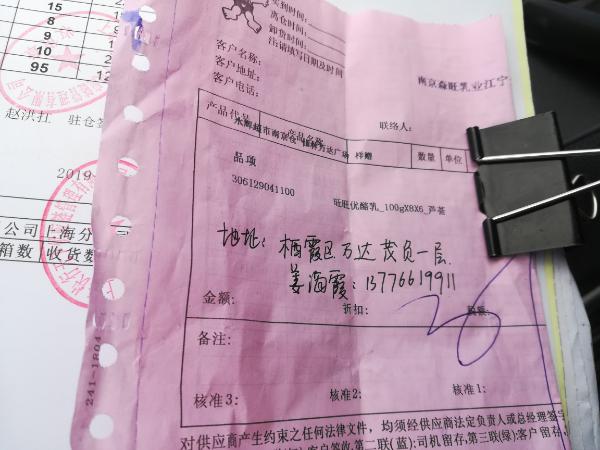 15
8
9
10
95
12
赵洪社 驻仓签
2019-
公司上海分
箱数 收货数
买到时间:
离仓时间:
卸货时间:
注请填写日期及时间
客户名称:
客户地址:
客户电话:
南京森旺乳业江宁
联络人:
产品代号 产品名称 数量 单位
永辉超市南京仓 万达广场 样赠
品项
306129041100 旺旺优酪乳_100gX8X6_芦荟
地址: 栖霞区万达茂负一层
姜海霞: 13776619911
金额: 折扣:
26
备注:
核准3: 核准2: 核准1:
241-1894
对供应商产生约束之任何法律文件，均须经供应商法定负责人或总经理签字
客户签收,第二联(蓝):司机留存,第三联(绿):客户留存,